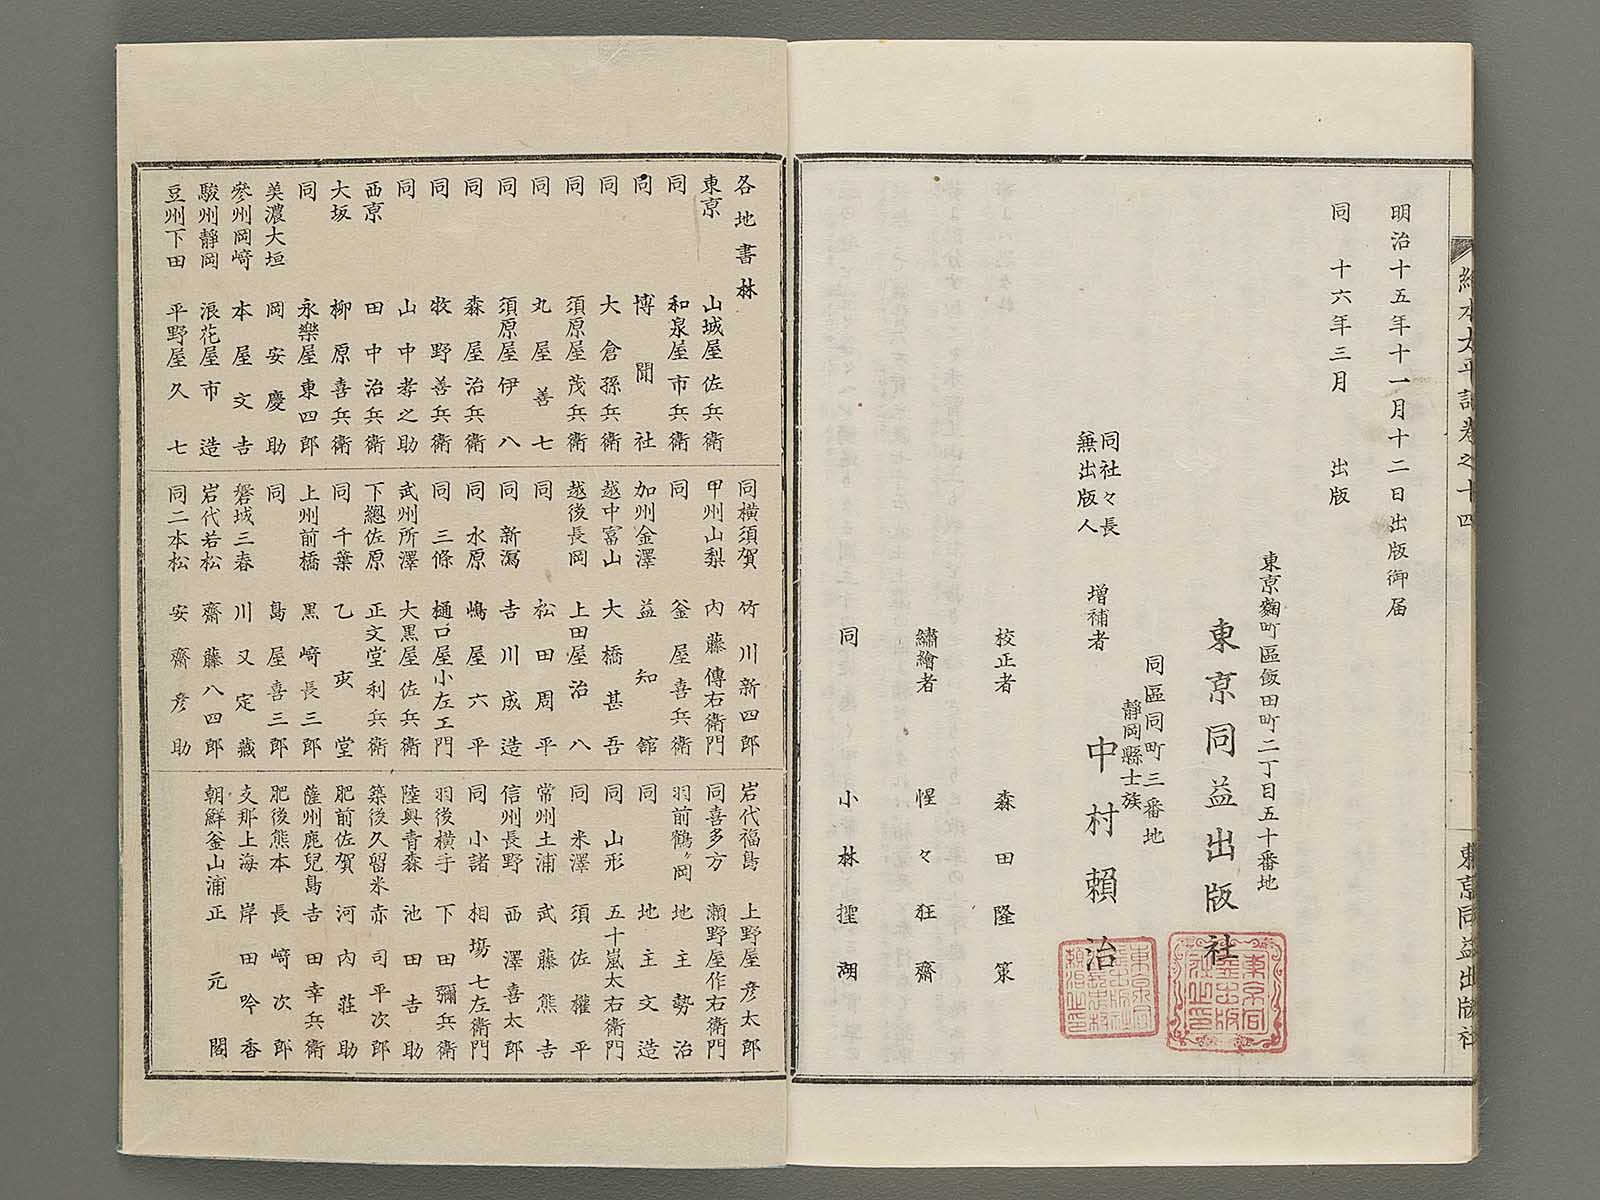 繪本太平記卷之十四
東京同益出版社
明治十五年十一月十二日出版御届
同 十六年三月 出版
東京麴町區飯田町二丁目五十番地
東京同益出版社
同區同町三番地
靜岡縣士族
同社々長
兼出版人
增補者 中村賴治
校正者 森田隆策
繡繪者 惺々狂齋
同 小林 湖
各地書林
東京 山城屋佐兵衛
同 和泉屋市兵衛
同 博聞社
同 大倉孫兵衛
同 須原屋茂兵衛
同 丸屋善七
同 須原屋伊八
同 森屋治兵衛
同 牧野善兵衛
同 山中孝之助
西京 田中治兵衛
大坂 柳原喜兵衛
同 永樂屋東四郎
美濃大垣 岡安慶助
參州岡﨑 本屋文吉
駿州靜岡 浪花屋市造
豆州下田 平野屋久七
同橫須賀 竹川新四郎
甲州山梨 内藤傳右衛門
同 釜屋喜兵衛
加州金澤 益知館
越中富山 大橋甚吾
越後長岡 上田屋治八
同 松田周平
同新瀉 吉川成造
同水原 嶋屋六平
同三條 樋口屋小左エ門
武州所澤 大黒屋佐兵衛
下總佐原 正文堂利兵衛
同千葉 乙亥堂
上州前橋 黑﨑長三郎
同 島屋喜三郎
磐城三春 川又定藏
岩代若松 齋藤八四郎
同二本松 安齋彦助
岩代福島 上野屋彦太郎
同喜多方 瀬野屋作右衛門
羽前鶴ヶ岡 地主勢治
同 地主文造
同山形 五十嵐太右衛門
同米澤 須佐權平
常州土浦 武藤熊吉
信州長野 西澤喜太郎
同小諸 相塲七左衛門
羽後橫手 下田彌兵衛
陸奥青森 池田吉助
築後久留米 赤司平次郎
肥前佐賀 河内莊助
薩州鹿兒島 吉田幸兵衛
肥後熊本 長﨑次郎
支那上海 岸田吟香
朝鮮釜山浦 正元閣